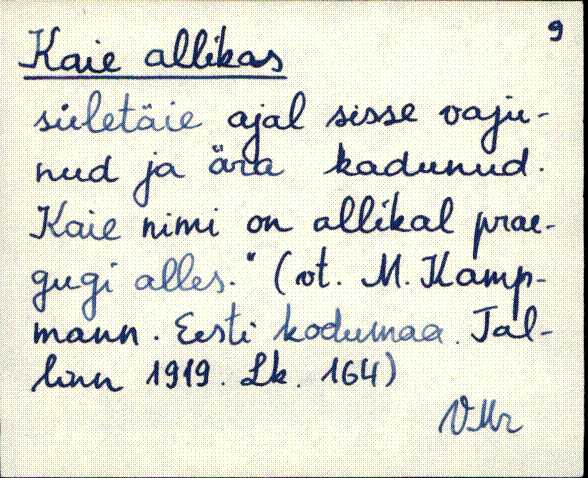 9
Kaie allikas
sületäie ajal sisse vaju-
nud ja ära kadunud.
Kaie nimi on allikal prae-
gugi alles." (vt. M. Kamp-
mann. Eesti kodumaa. Tal-
linn 1919. Lk. 164)
VMr